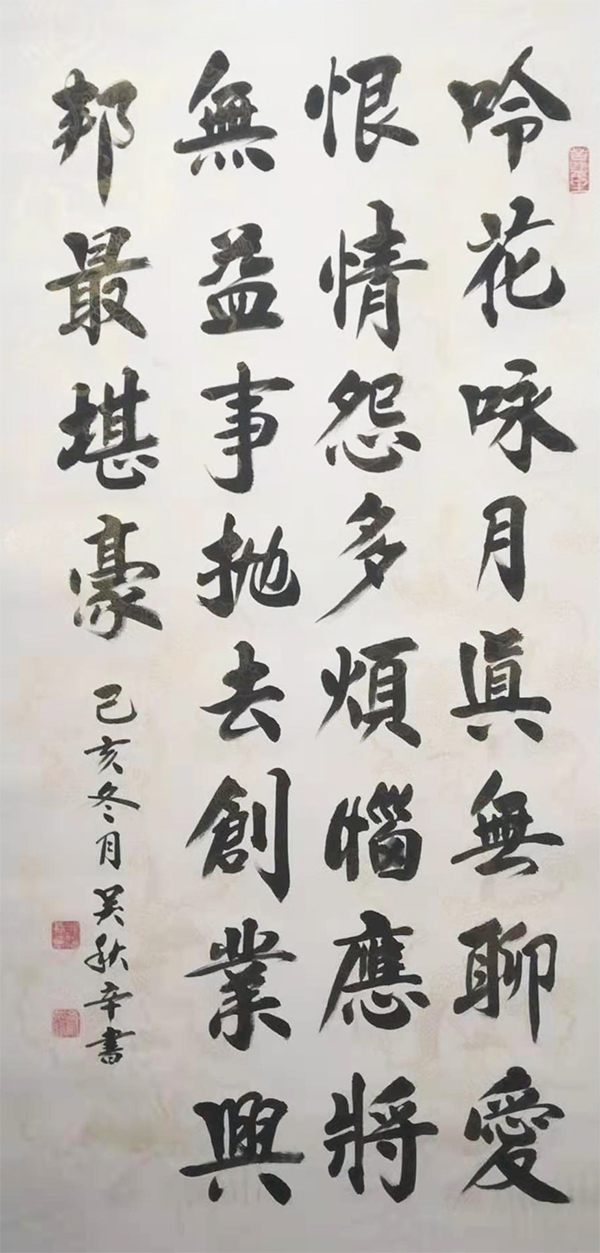 吟花咏月真無聊愛
恨情怨多煩惱應將
無益事抛去創業興
邦最堪豪
己亥冬月吴秋辛書